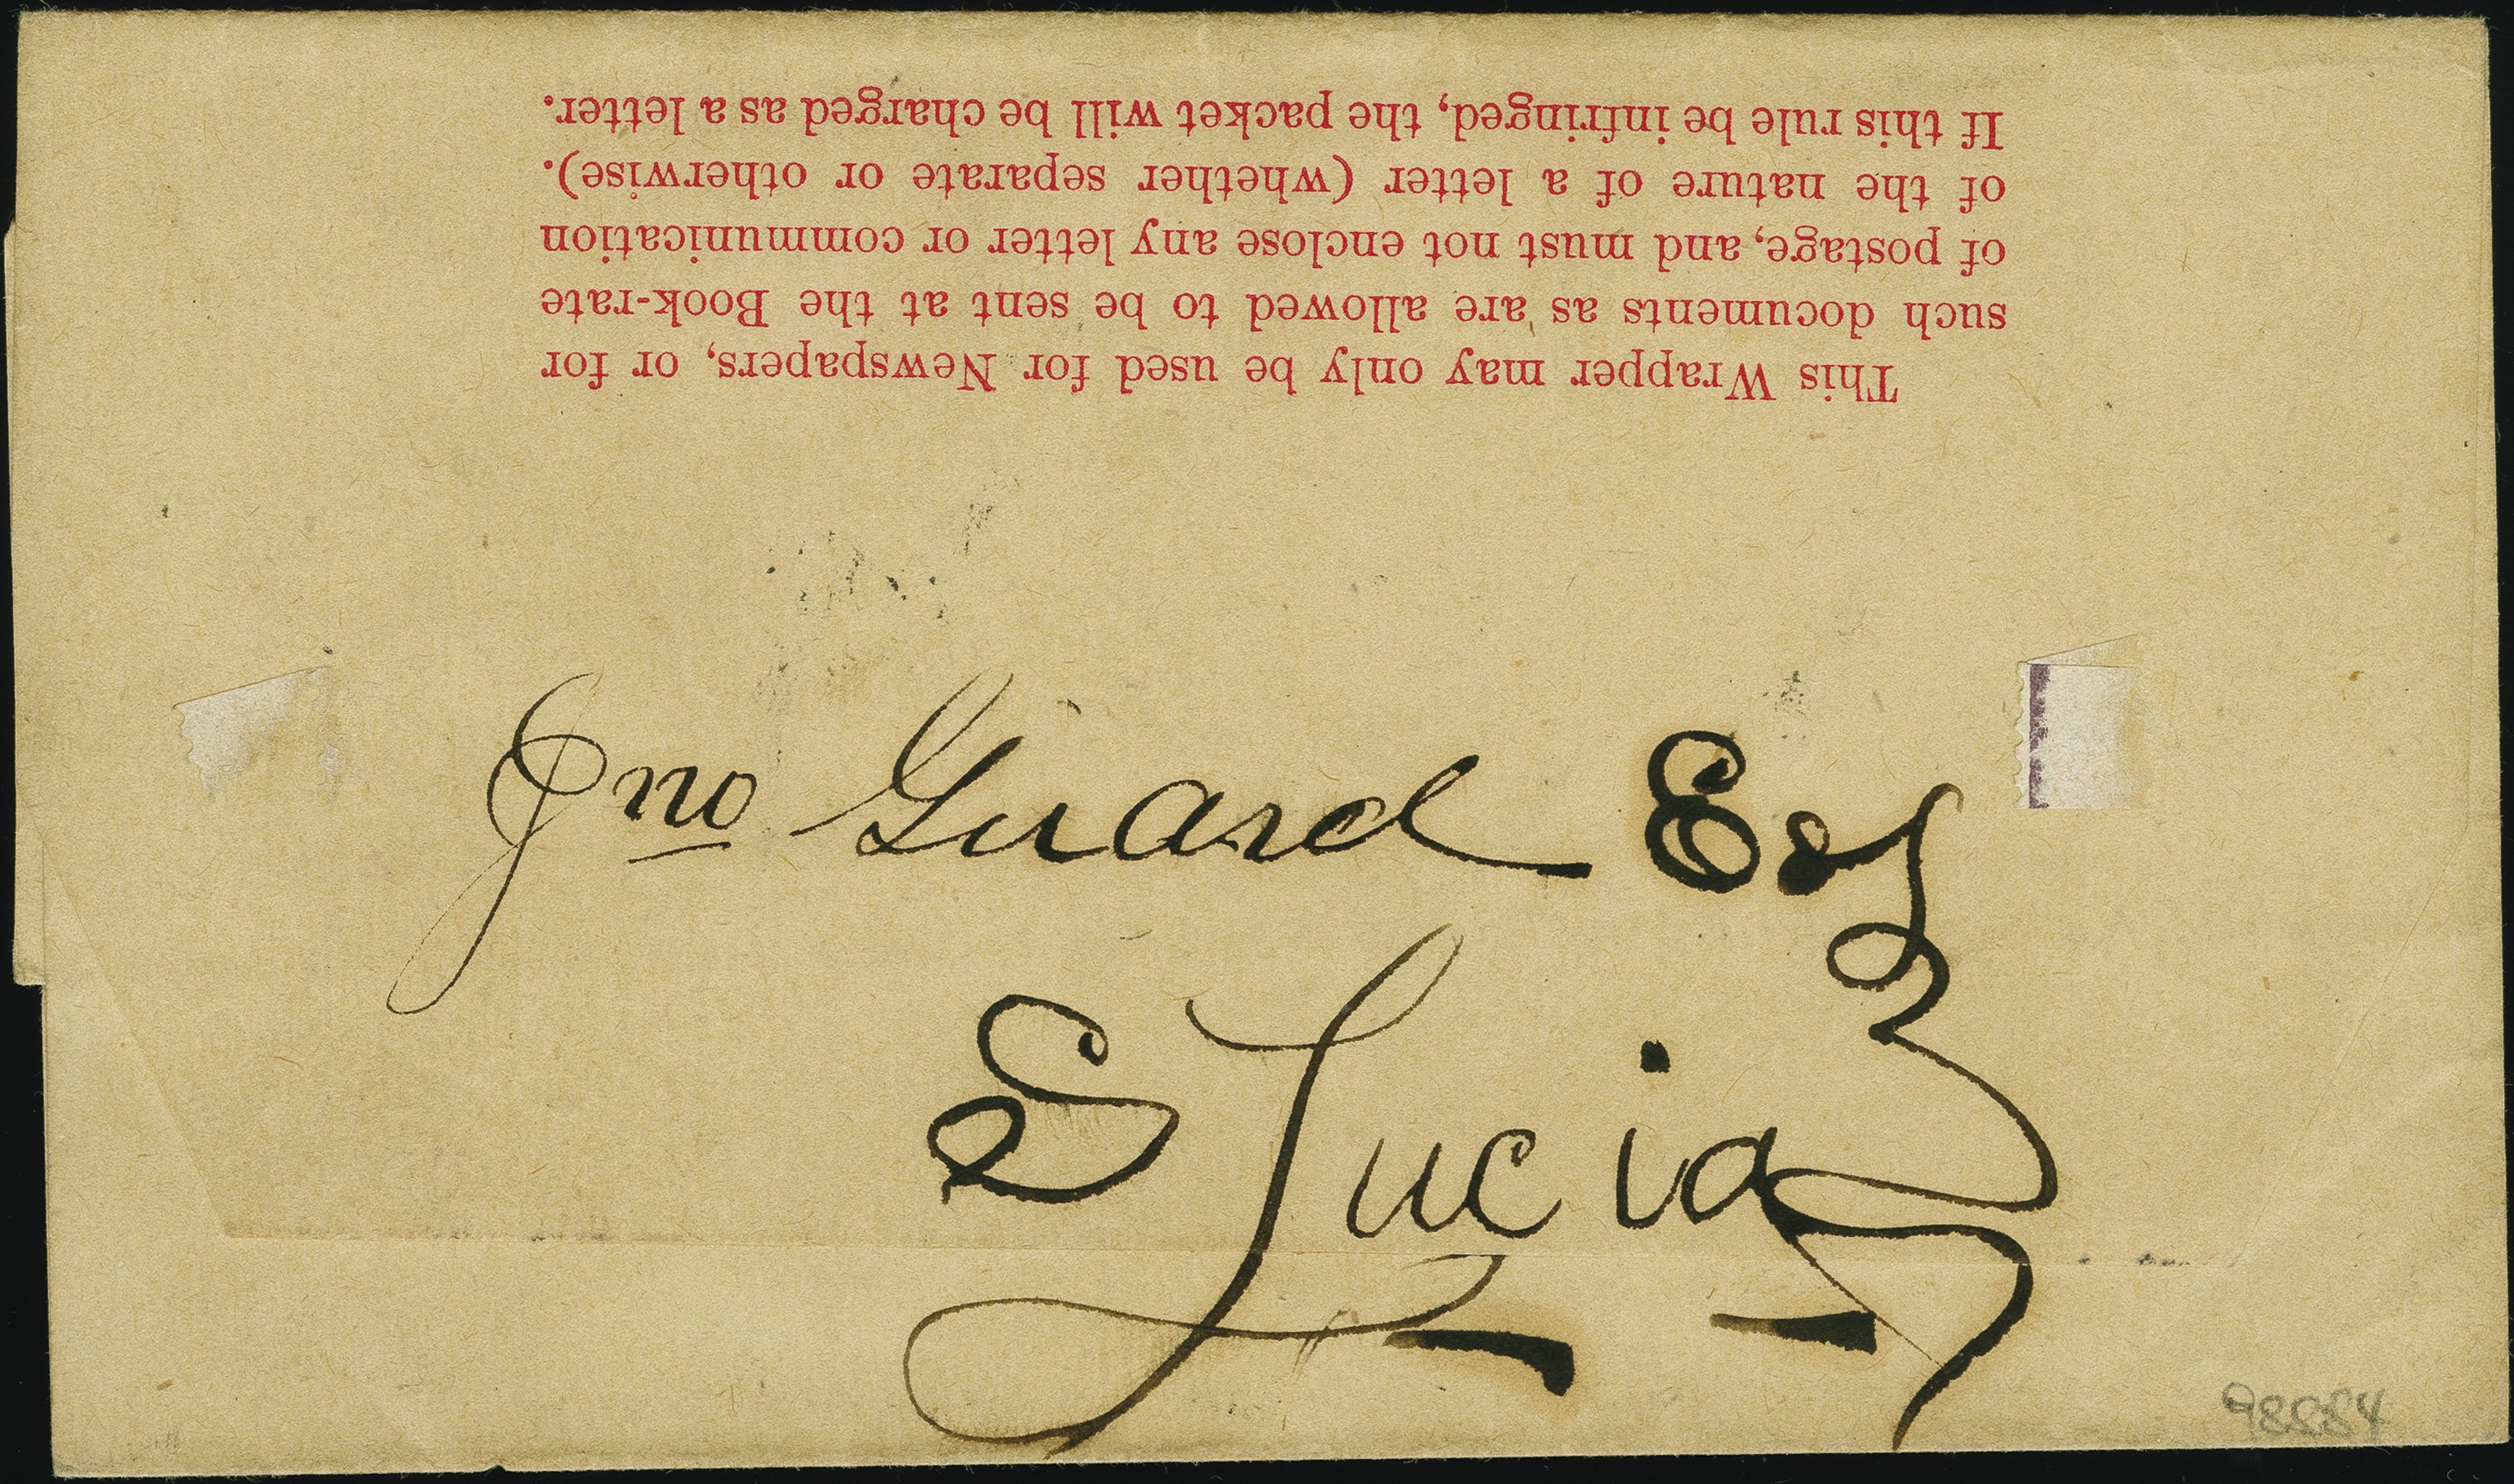 This Wrapper may only be used for Newspapers, or for
such documents as are allowed to be sent at the Book-rate
of postage, and must not enclose any letter or communication
of the nature of a letter (whether separate or otherwise).
If this rule be infringed, the packet will be charged as a letter.
Jno Guard Esq
S Lucia
98884